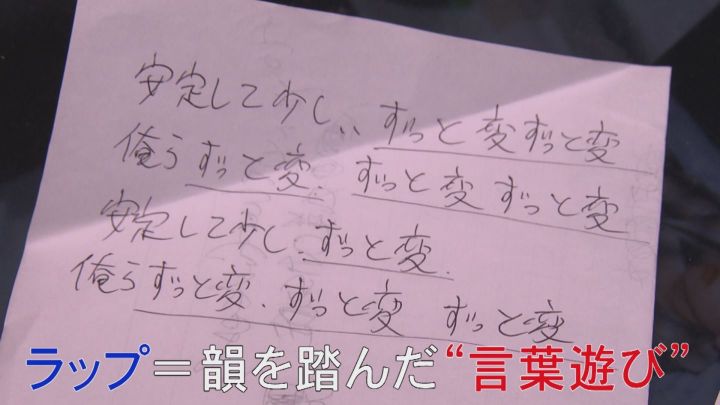 安定して少し、ずっと変ずっと変
俺らずっと変、ずっと変ずっと変
安定して少し、ずっと変、
俺らずっと変、ずっと変 ずっと変
ラップ＝韻を踏んだ“言葉遊び”